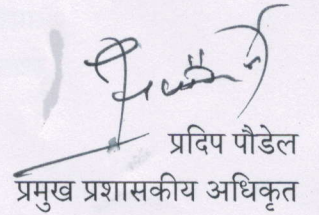 प्रदिप पौडेल
प्रमुख प्रशासकीय अधिकृत